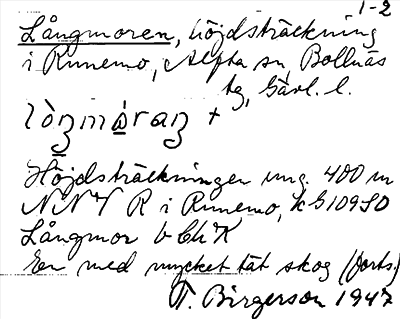 1-2
Långmoren, höjdsträckning
i Runemo, Alfta sn, Bollnäs
tg, Gävl. l.
Höjdsträckningen ung. 400 m
NNV R i Runemo, k G 109 SO
Långmor
En med mycket tät skog (forts.)
T. Birgerson 1947